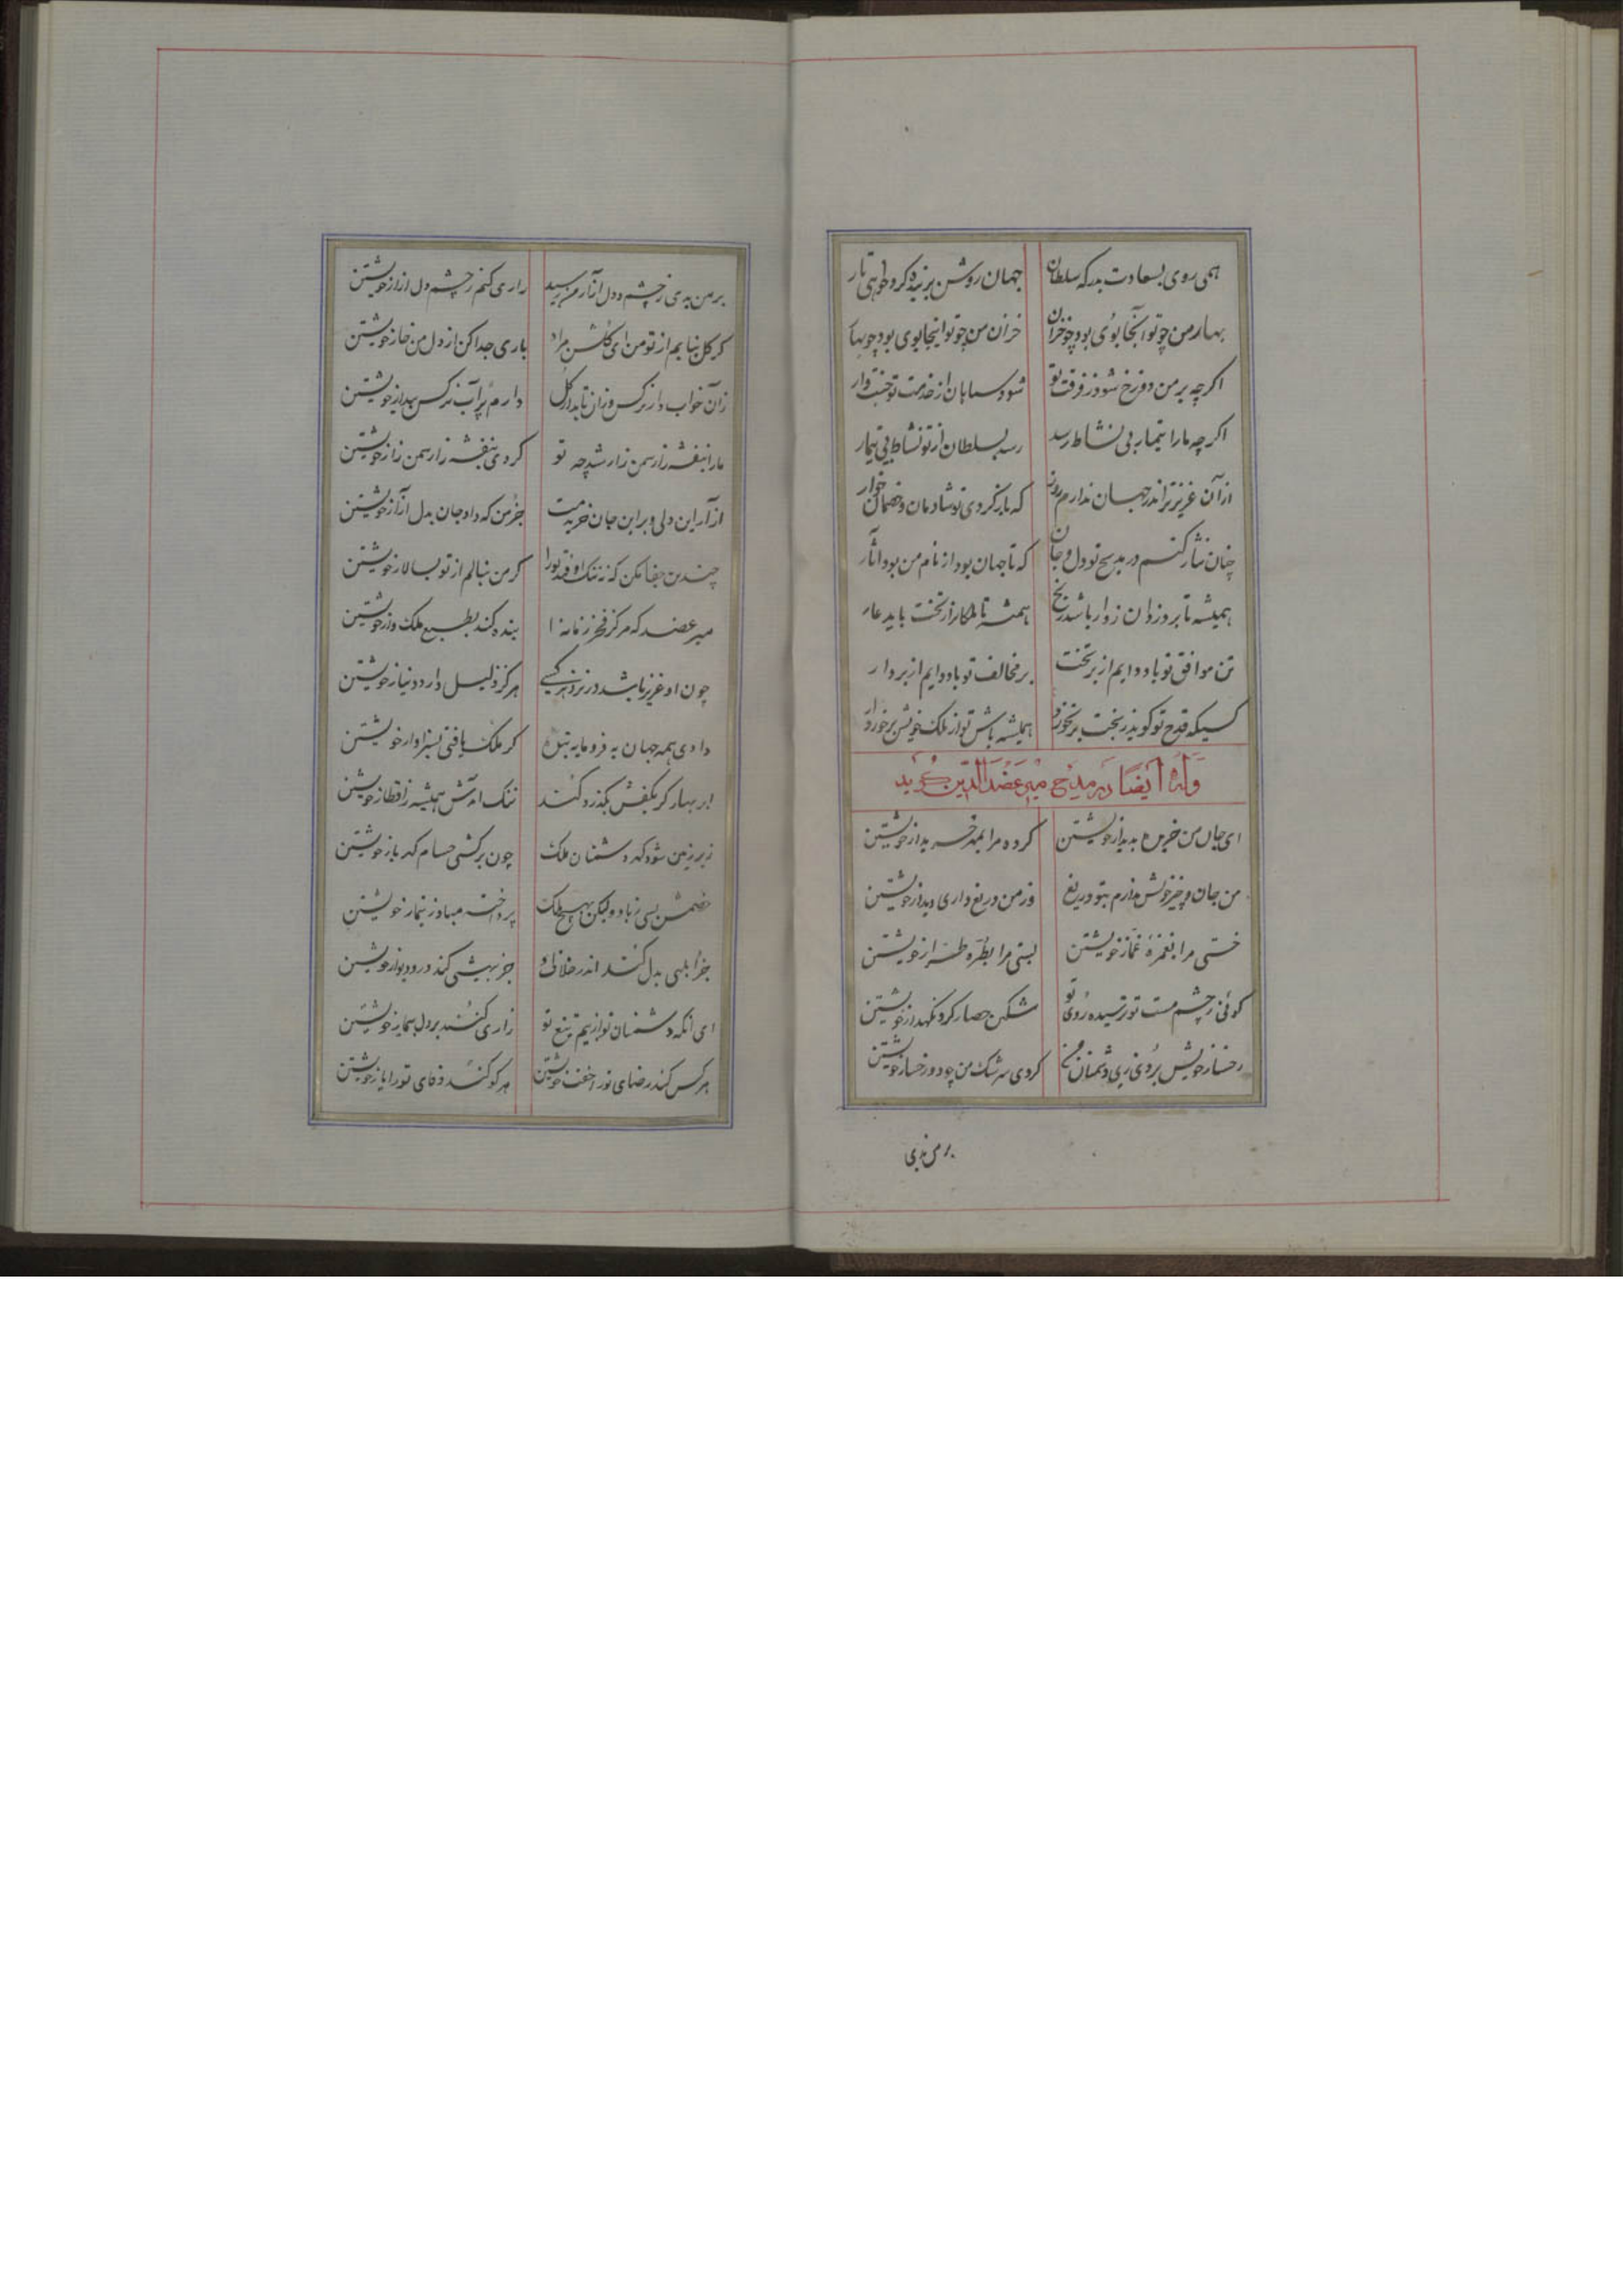 همی روی بسعادت بدرگه سلطان جهان روشن بر بنده کرد خواهی تار
بهار من چو تو آنجا بوی بود چو خزان خزان من چو تو اینجا بوی بود چو بهار
اگر چه بر من دوزخ شود ز فرقت تو شود سپاهان از خدمت تو جنت وار
اگر چه ما را تیمار بی نشاط رسد رسد بسلطان از تو نشاط بی تیمار
از آن عزیزتر اندر جهان ندارم روز که باز گردی تو شادمان و خصمان خوار
چنان نثار کنم در مدیح تو دل و جان که تا جهان بود از نام من بود آثار
همیشه تا بر وزدان زوار باشد رنج همیشه تا ملکان را ز تخت باید عار
تن موافق تو باد دایم از بر تخت بر مخالف تو باد دایم از بر دار
کسیکه قدح تو گوید ز بخت بر نخورد همیشه باش تو از ملک خویش برخوردار
وله ایضا در مدح میر عضد الدین گوید
ای جان من خریده بدیدار خویشتن کرده مرا بمهر خریدار خویشتن
من جان و چیز خویش ندارم بتو دریغ وز من دریغ داری دیدار خویشتن
خستی مرا بغمزه غماز خویشتن بستی مرا بطره طرار خویشتن
گوئی ز چشم مست تو ترسیده روی تو مشکین حصار کرد نگهدار خویشتن
رخسار خویش بروی دشمنان من کردی سرشک من چو دو رخسار خویشتن
بر من بدی
بر من بدی ز چشم و دل آزار من رسید زاری کنم ز چشم و دل زار خویشتن
گر گل نیابم از تو من ای گلشن مراد باری جدا کن از دل من خار خویشتن
زان خواب دار نرگس و زان تابدار گل دارم پر آب نرگس بیدار خویشتن
ما را بنفشه زار سمن زار شد چه تو کردی بنفشه زار سمن زار خویشتن
از آزار این دلی و بر این جان خریدمت جز من که داد جان بدل آزار خویشتن
چندین جفا مکن که ز ننگ اوفتد تو را گر من بنالم از تو بسالار خویشتن
میر عضد که مرکز فخر زمانه را بنده کند بطبع ملک وار خویشتن
چون او عزیز باشد در نزد هر کسی هرگز ذلیل دارد دینار خویشتن
دادی همه جهان به فرومایه بنده گر ملک یافتی بسزاوار خویشتن
ابر بهار گر بکفش بگذرد کند ننگ آیدش همیشه ز اقطار خویشتن
زیر زمین شود که دشمنان ملک چون برکشی حسام گهربار خویشتن
خصمش بسی زیاد ولیکن بهیچ ملک پرداخته مباد ز تیمار خویشتن
جز ابلهی بدل کند اندر خلاف او جز بیهشی کند در و دیوار خویشتن
ای آنکه دشمنان تو از بیم تیغ تو زاری کنند بر دل بیمار خویشتن
هر کس کند رضای تو را جفت خویشتن هر کو کند وفای تو را یار خویشتن